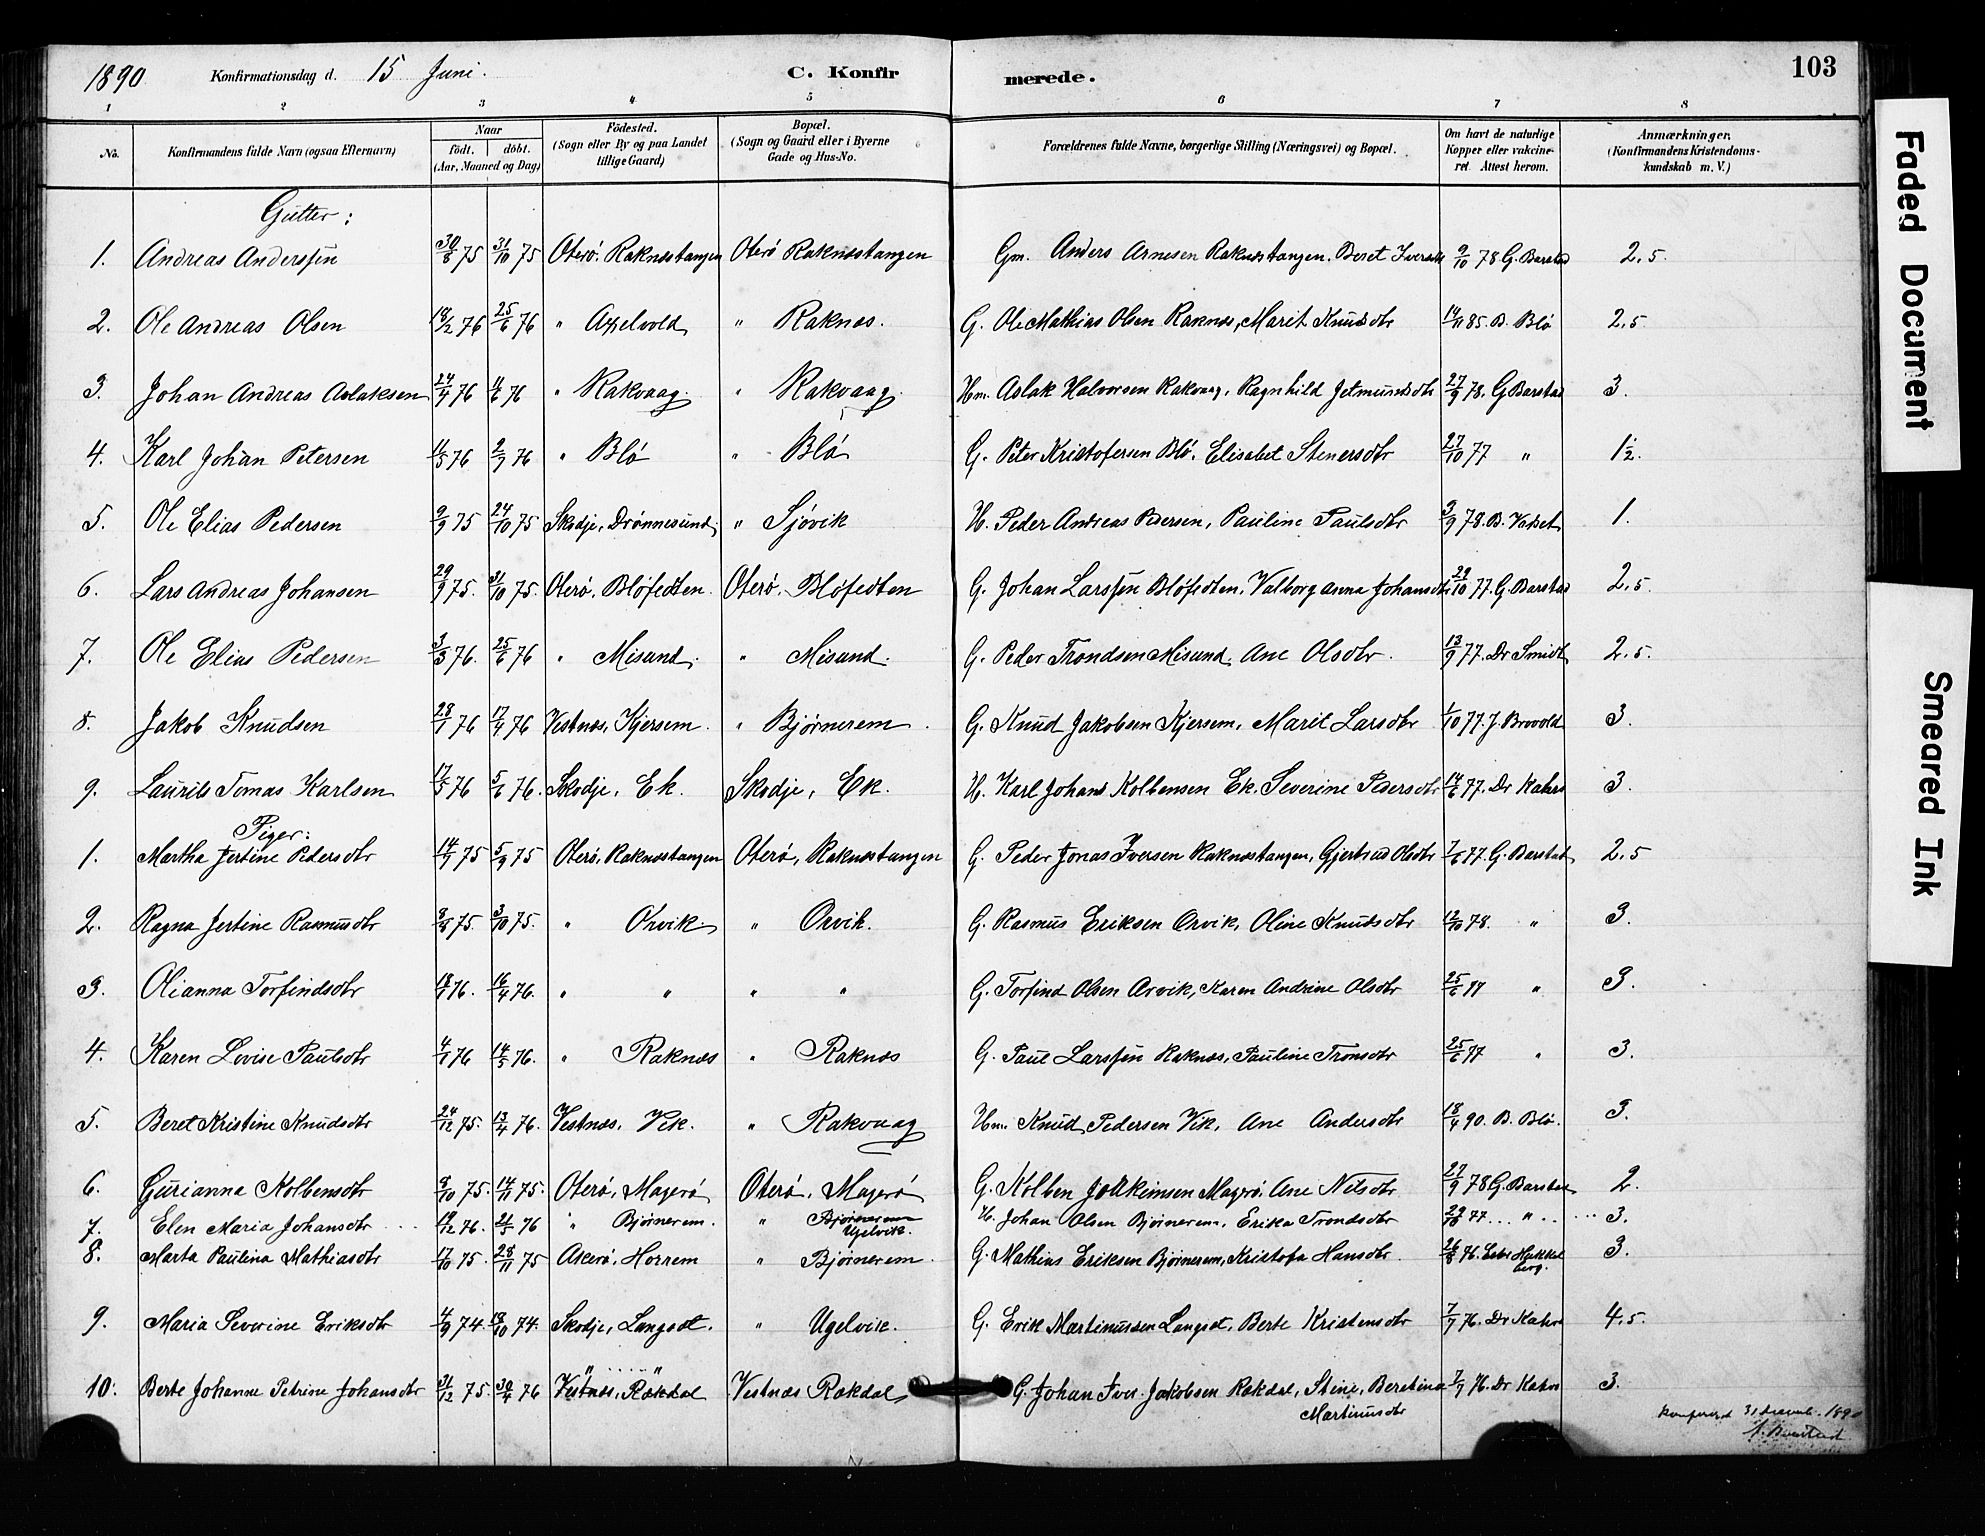 1890 Konfirmationsdag d. 15 Juni. C. Konfirmerede. 103
1 2 3 4 5 6 7 8
No. Konfirmandens fulde Navn (ogsaa Efternavn) Naar født. døbt. (Aar, Maaned og Dag) Födested. (Sogn eller By og paa Landet tillige Gaard) Bopæl. (Sogn og Gaard eller i Byerne Gade og Hus-No. Forældrenes fulde Navne, borgerlige Stilling (Næringsvei) og Bopæl. Om havt de naturlige Kopper eller vakcineret Attest herom. Anmærkninger. (Konfirmandens Kristendomskundskab m. V.)
Gutter:
1. Andreas Anderssen 30/8 75 31/10 75 Oterö. Raknæstangen Oterö Raknæstangen Gm. Anders Arnesen Raknæstangen. Beret 9/10 78 G. Barstad 2,5.
2. Ole Andreas Olsen 18/2 76 25/6 76 " Axelvold " Raknæs. G. Ole Mathias Olsen Raknæs, Marit Knudsdtr 14/11 85. B. Blö 2,5
3. Johan Andreas Aslaksen 24/4 76 11/6 76 " Rakvaag. " Rakvaag. Hm. Aslak Halvorsen Rakvaag, Ragnhild Jetmundsdtr 27/9 78. G Barstad 3.
4. Karl Johan Petersen 11/5 76 2/7 76 " Blö " Blö G. Peter Kristofersen Blö. Elisabet Stenersdtr 27/10 77 " 1½.
5. Ole Elias Pedersen 9/9 75 24/10 75 Skodje, Drönnesund. " Sjövik H. Peder Andreas Pedersen, Pauline Paulsdtr 3/9 78. B. 1.
6. Lars Andreas Johansen 29/9 75. 31/10 75. Oterö. Blöfedten. Oterö. Blöfedten G. Johan Larssen Blöfedten. Valborg Anna Johansdtr 29/10 77. G. Barstad 2,5.
7. Ole Elias Pedersen 3/3 76. 25/6 76 " Misund. " Misund. G. Peder Trondsen Misund. Ane Olsdtr. 13/9 77. Dr Smidt 2,5.
8. Jakob Knudsen 28/1 76 17/4 76 Vestnæs, Kjersem. " Bjørnerem. G. Knud Jakobsen Kjersem, Marit Larsdtr 1/10 77. J. Brovold 3.
9. Laurits Tomas Karlsen 17/5 76 5/6 76. Skodje, Ek. Skodje, Ek. H. Karl Johans Kolbensen Ek. Severine Pedersdtr 14/6 77. Dr Kahrs 3.
Piger:
1. Martha Jertine Pedersdtr 14/7 75 5/9 75 Oterö, Raknæstangen Oterö, Raknæstangen G. Peder Jonas Iversen Raknæstangen, Gjertrud Olsdtr 7/6 77. G. Barstad 2,5
2. Ragna Jertine Rasmusdtr 8/8 75. 3/10 75. " Orvik " Orvik. G. Rasmus Eriksen Orvik, Oline Knudsdtr 12/10 78. " 3.
3. Olianna Torfindsdtr 18/1 76. 16/4 76. " " " " G. Torfind Olsen Orvik, Karen Andrine Olsdtr 25/6 77 " 3.
4. Karen Lovise Paulsdtr 4/1 76 14/5 76. " Raknæs " Raknæs G. Paul Larssen Raknæs, Pauline Tronsdtr 25/6 77 " 3.
5. Beret Kristine Knudsdtr 24/12 75. 13/4 76. Vestnæs, Vik. " Rakvaag Hm. Knud Pedersen Vik, Ane Andersdtr 18/4 90. B. Blö. 3.
6. Gurianna Kolbensdtr 9/10 75. 14/11 75. Oterö, Magerö Oterö, Magerö G. Kolben Joakimsen Magerö, Ane Nilsdtr 27/9 78 G. Barstad 2.
7. Elen Maria Johansdtr 19/12 76. 21/5 76 " Bjørnerem. " Bjørnerem Ugelvik. H. Johan Olsen Bjørnerem, Erika Trondsdtr 29/10 77 " 3.
8. Marta Paulina Mathiasdtr 17/10 75. 28/11 75 Akerö, Horrem " Bjørnerem. G. Mathias Eriksen Bjørnerem, Kristofa Hansdtr. 26/8 76. 3.
9. Maria Severine Eriksdtr 4/9 74. 18/10 74. Skodje, Langset. " Ugelvik. G. Erik Martinussen Langset, Berte Kristensdtr 7/7 76. Dr Kahrs 4,5.
" "
10. Berte Johanne Petrine Johansdtr 31/12 75. 30/4 76 Vestnæs, Rækdal Vestnæs Rækdal G. Johan Iver Jakobsen Rækdal, Stine, Beretina 7/7 76. Dr Kahrs 3.
Martinusdtr
31 decemb. 1890
Faded Document
Smeared Ink